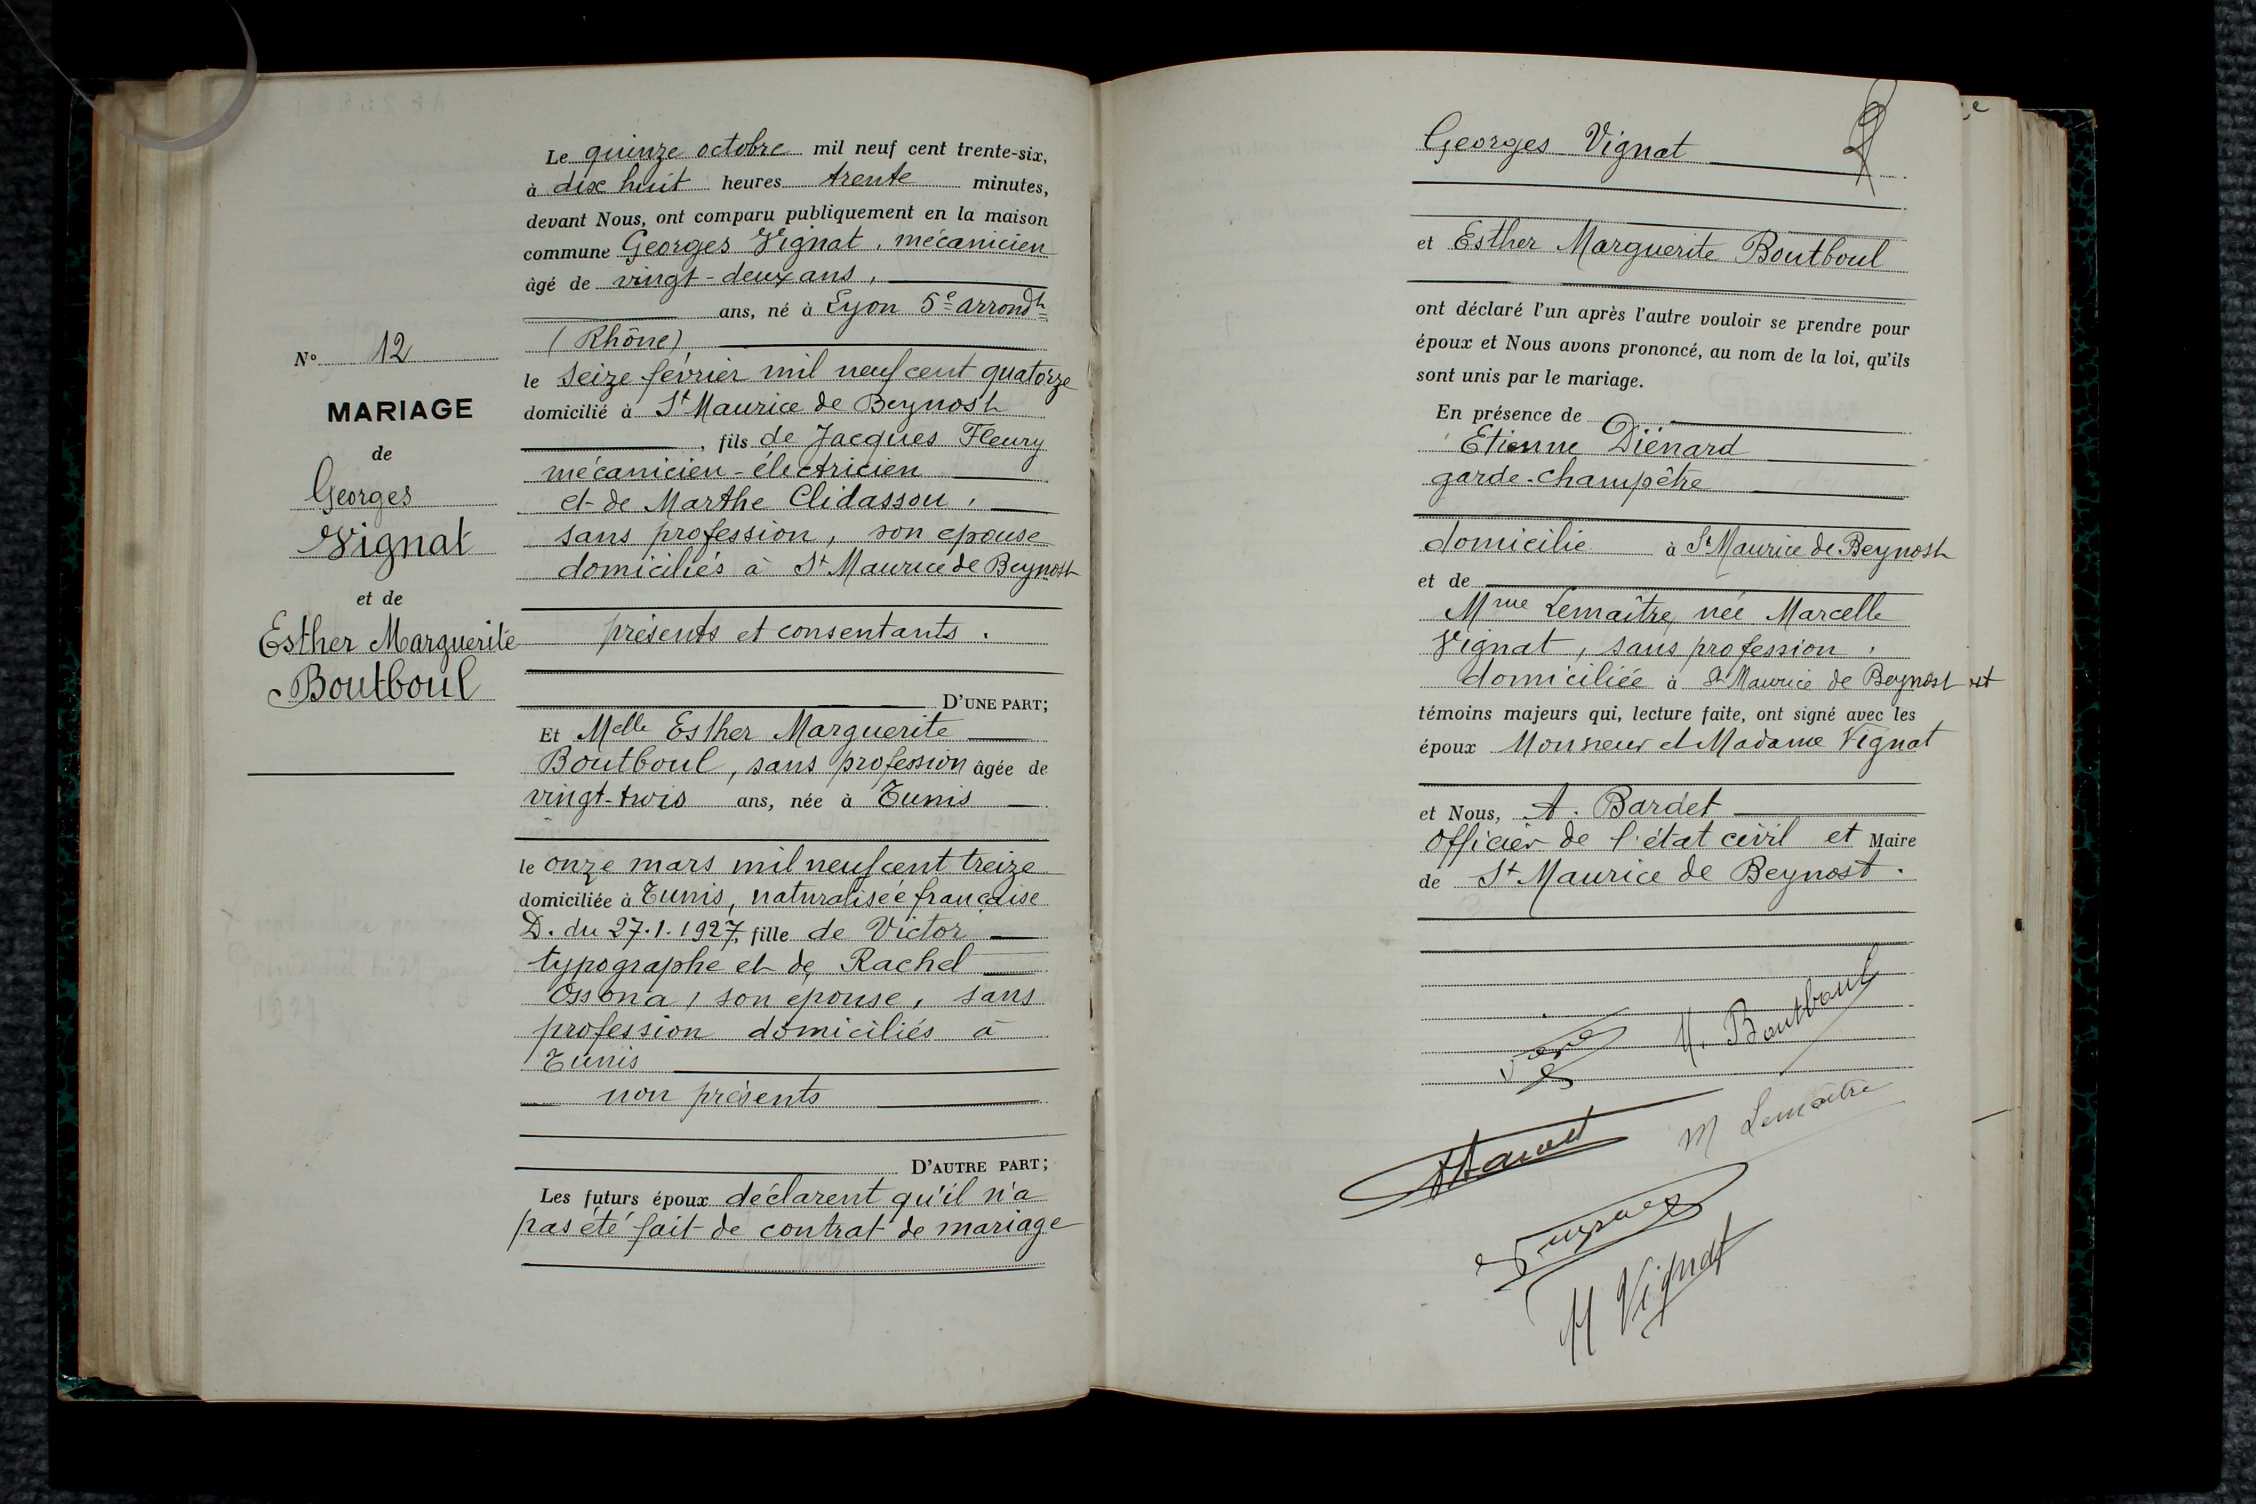 N° 12
MARIAGE
de
Georges
Vignat
et de
Esther Marguerite
Boutboul
Le quinze octobre mil neuf cent trente-six,
à dix huit heures trente minutes,
devant Nous, ont comparu publiquement en la maison
commune Georges Vignat, mécanicien
âgé de vingt-deux ans,
ans, né à Lyon 5e arrondt
(Rhône)
le seize février mil neuf cent quatorze
domicilié à St Maurice de Beynost
, fils de Jacques Fleury
mécanicien-électricien
et de Marthe Clidassou,
sans profession, son epouse
domiciliés à St Maurice de Beynost
présents et consentants.
D'UNE PART;
Et Melle Esther Marguerite
Boutboul, sans profession âgée de
vingt-trois ans, née à Tunis
le onze mars mil neuf cent treize
domiciliée à Tunis, naturalisée française
D. du 27.1.1927, fille de Victor
typographe et de Rachel
Ossona, son epouse, sans
profession domiciliés à
Tunis
non présents
D'AUTRE PART;
Les futurs époux déclarent qu'il n'a
pas été fait de contrat de mariage
Georges Vignat
et Esther Marguerite Boutboul
ont déclaré l'un après l'autre vouloir se prendre pour
époux et Nous avons prononcé, au nom de la loi, qu'ils
sont unis par le mariage.
En présence de
Etienne Diénard
garde-champêtre
domicilié à St Maurice de Beynost
et de
Mme Lemaître, née Marcelle
Vignat, sans profession,
domiciliée à St Maurice de Beynost et
témoins majeurs qui, lecture faite, ont signé avec les
époux Monsieur et Madame Vignat
et Nous, A. Bardet
Officier de l'état civil et Maire
de St Maurice de Beynost.
M. Boutboul
M Lemaître
M Vignat